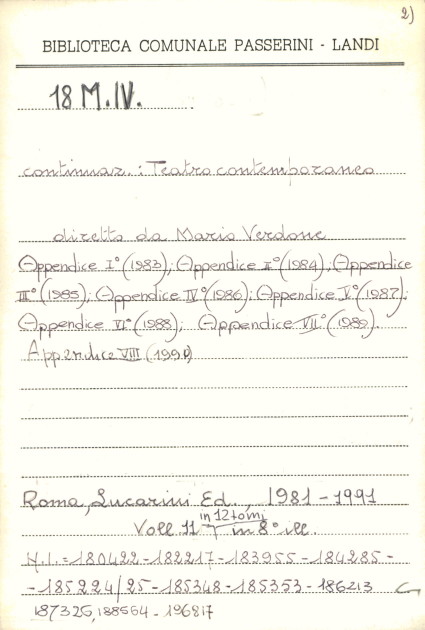 2)
BIBLIOTECA COMUNALE PASSERINI - LANDI
18 M.IV.
continuaz.: Teatro contemporaneo
diretto da Mario Verdone
Appendice I° (1983); Appendice II° (1984); Appendice
III° (1985); Appendice IV° (1986); Appendice V° (1987);
Appendice VI° (1988); Appendice VII° (1989).
Appendice VIII (1990)
Roma, Lucarini Ed., 1981-1991
in 12 tomi
Voll. 11 in 8° ill.
N.I.= 180422-182217-183955-184285-
-185224/25-185348-185353-186213
187326, 188564-196817